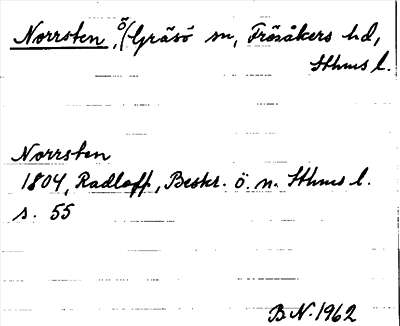 Norrsten, ö (Gräsö sn, Frösåkers hd,
Sthms l.
Norrsten
1804, Radloff, Beskr. ö. n. Sthms l.
s. 55
B.N. 1962